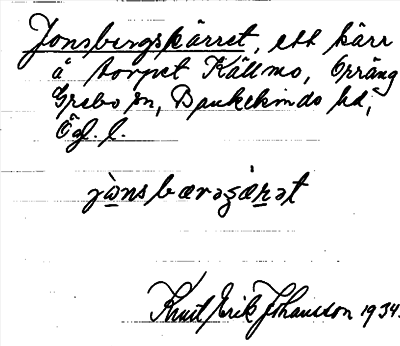 Jonsbergskärret, ett kärr
å torpet Källmo, Opräng
Grebo sn, Bankekinds hd,
Ög. l.
jònsbærəʂæ̀rət
Knut Erik Johansson 1934.